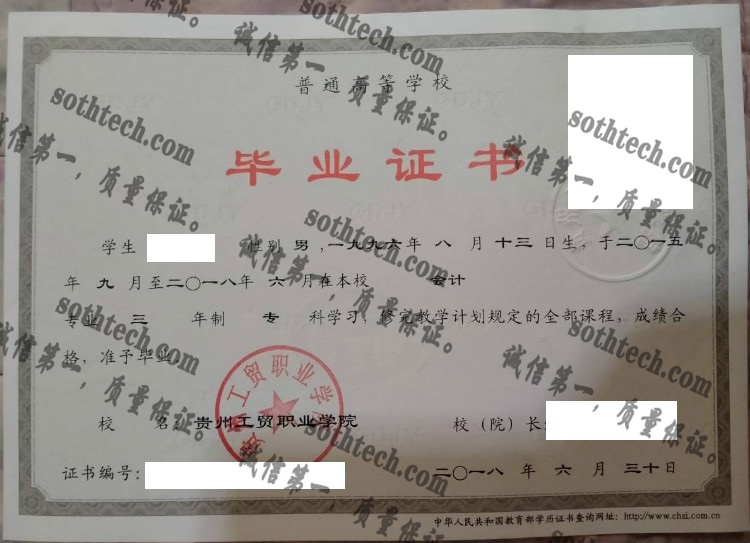 普通高等学校
毕业证书
学生 性别 男 ,一九九六年 八 月 十三 日生, 于二〇一五
年 九 月至二〇一八年 六 月在本校 会计
专业 三 年制 专 科学习, 修完教学计划规定的全部课程, 成绩合
格, 准予毕业。
贵州工贸职业学院
校 名: 贵州工贸职业学院 校 (院) 长:
证书编号: 二〇一八 年 六 月 三十日
中华人民共和国教育部学历证书查询网址: http://www.chsi.com.cn
sothtech.com
诚信第一，质量保证。